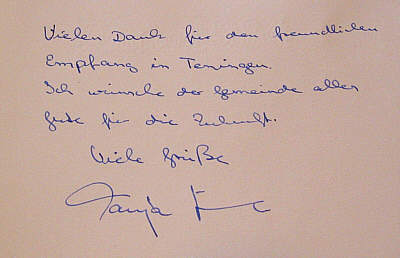 Vielen Dank für den freundlichen
Empfang in Teningen.
Ich wünsche der Gemeinde alles
Gute für die Zukunft.
Viele Grüße
Tanja